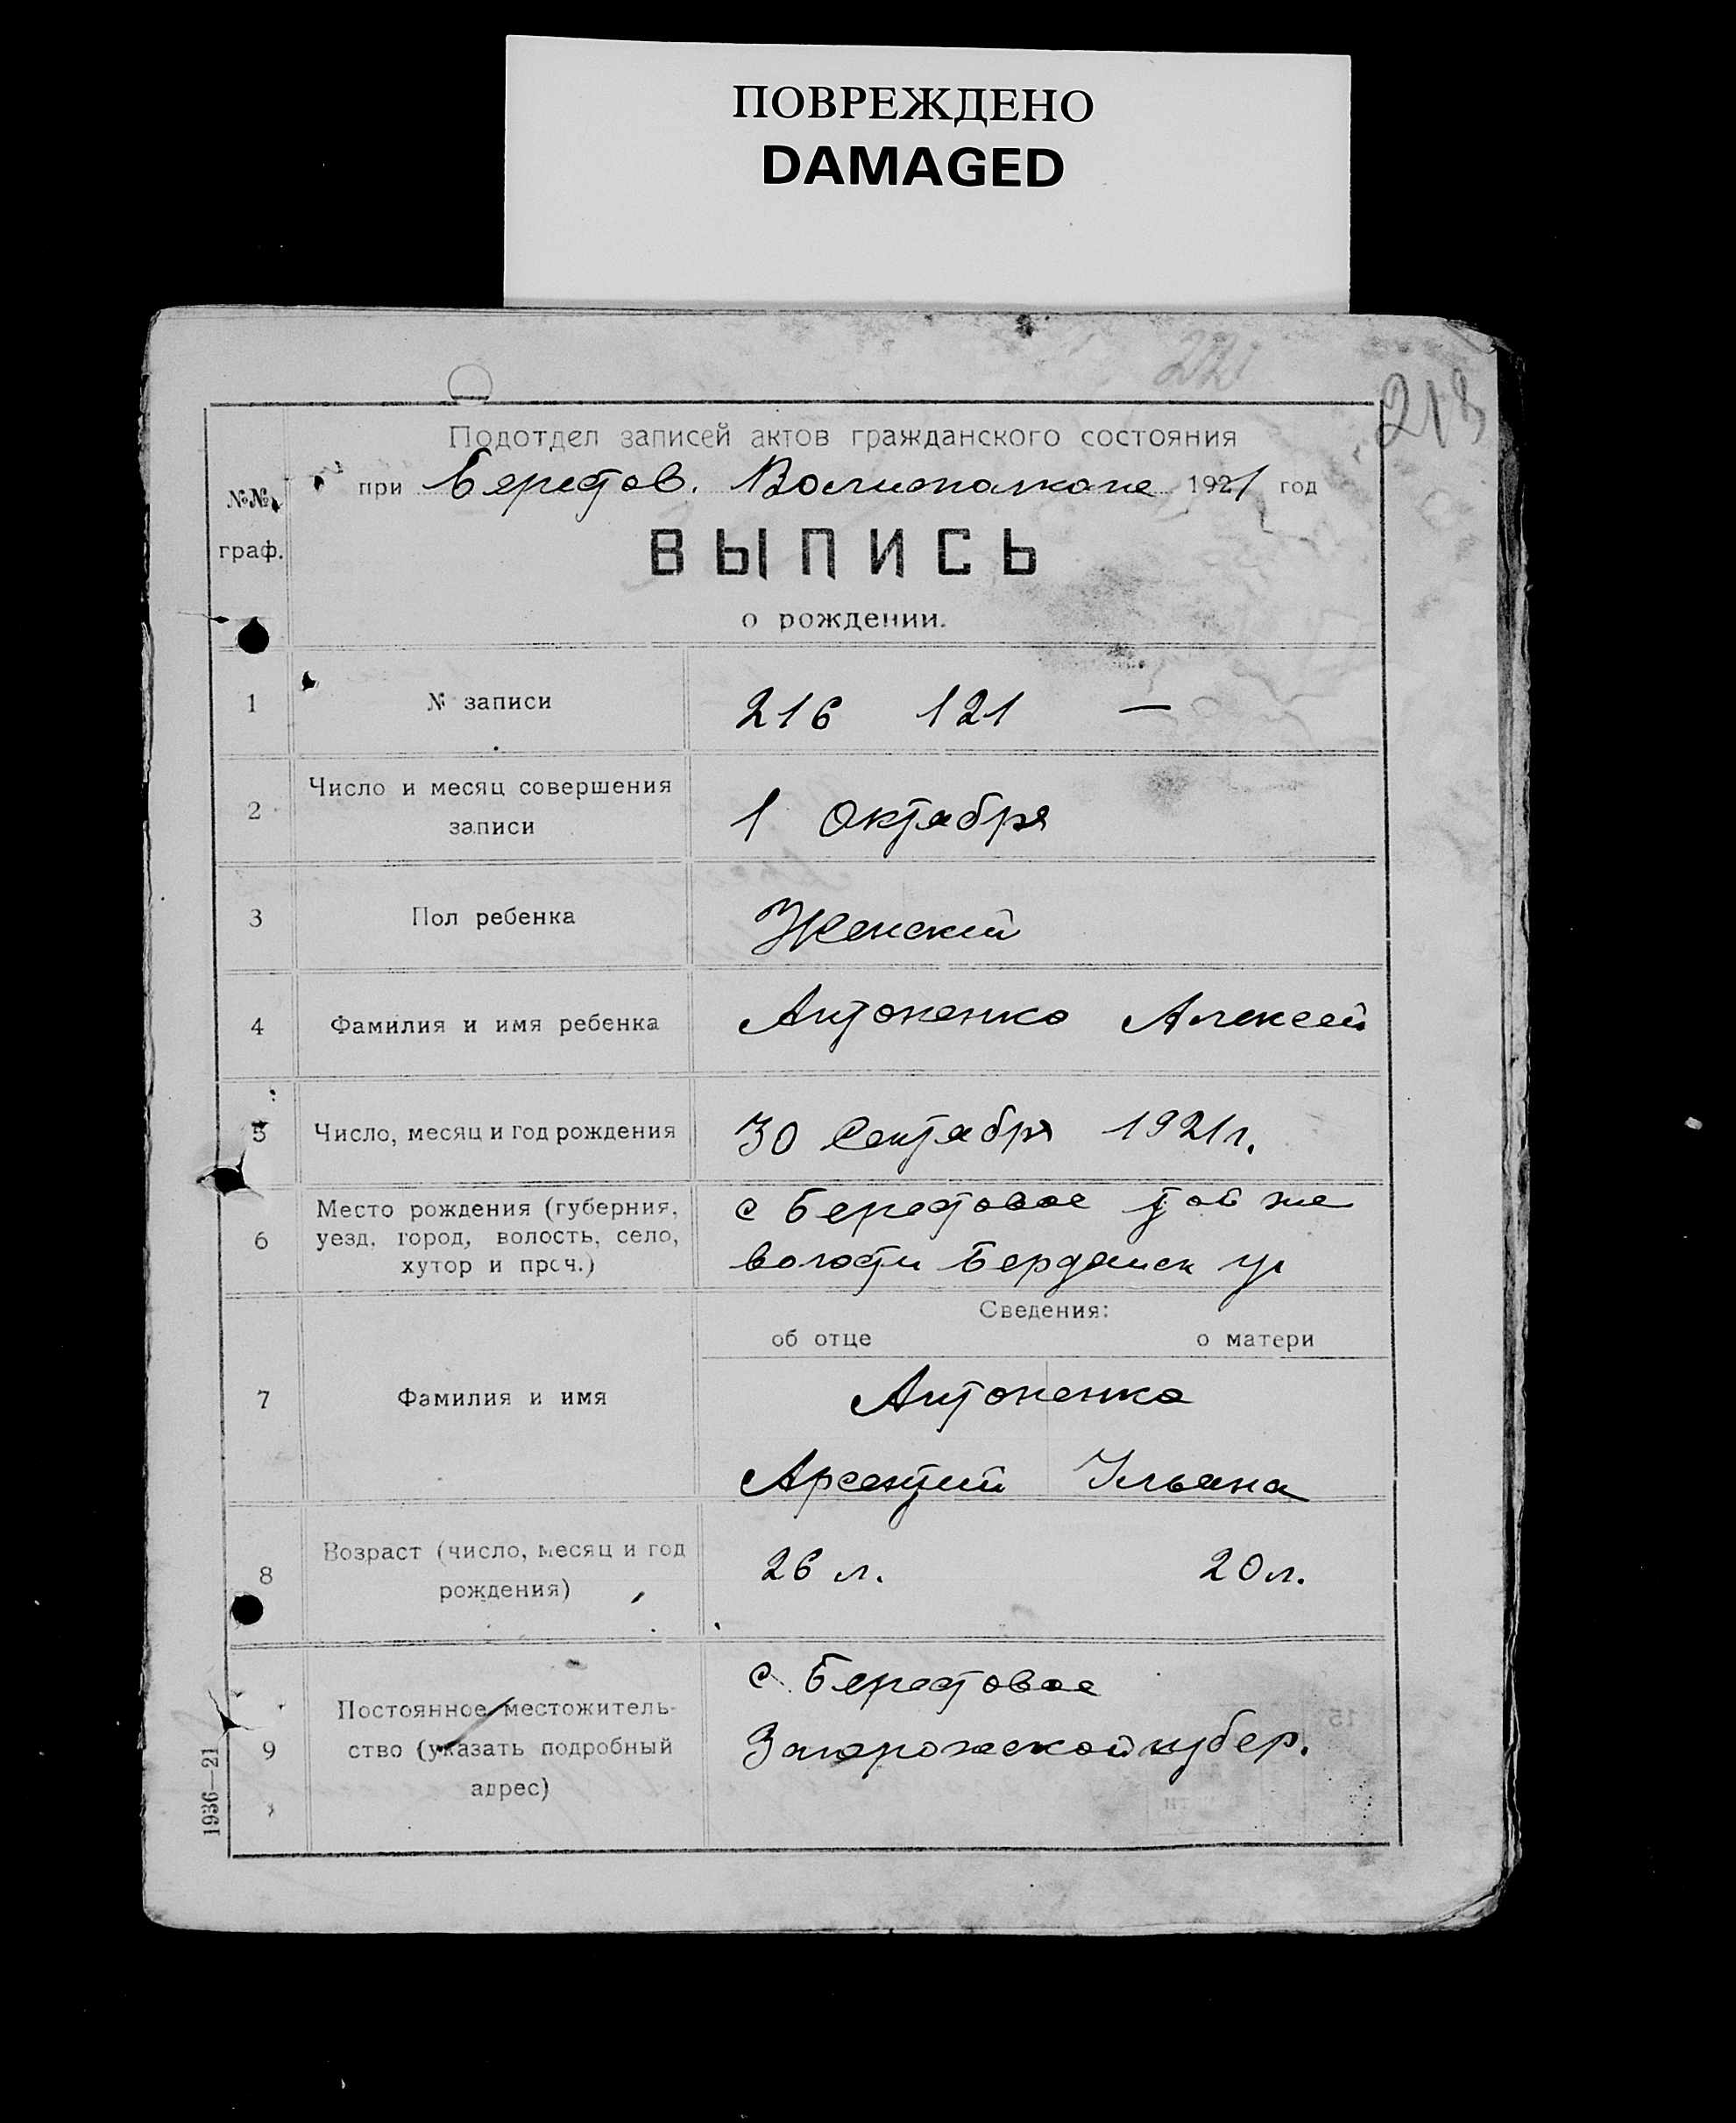 ПОВРЕЖДЕНО
DAMAGED
222
213
Подотдел записей актов гражданского состояния
при Берестов. 1921 год
№№
граф.
ВЫПИСЬ
о рождении.
1 № записи 216 121 —
2 Число и месяц совершения
записи 1 Октября
3 Пол ребенка Женский
4 Фамилия и имя ребенка Антоненко Алексей
5 Число, месяц и год рождения 30 Сентября 1921 г.
6 Место рождения (губерния,
уезд, город, волость, село,
хутор и проч.)
с Берестовое той же
волости Бердянск у
Сведения:
об отце о матери
7 Фамилия и имя
Антоненко
Арсентий Ульяна
8 Возраст (число, месяц и год
рождения)
26 л. 20 л.
9 Постоянное местожитель-
ство (указать подробный
адрес)
с. Берестовое
Запорожской губер.
1936—21